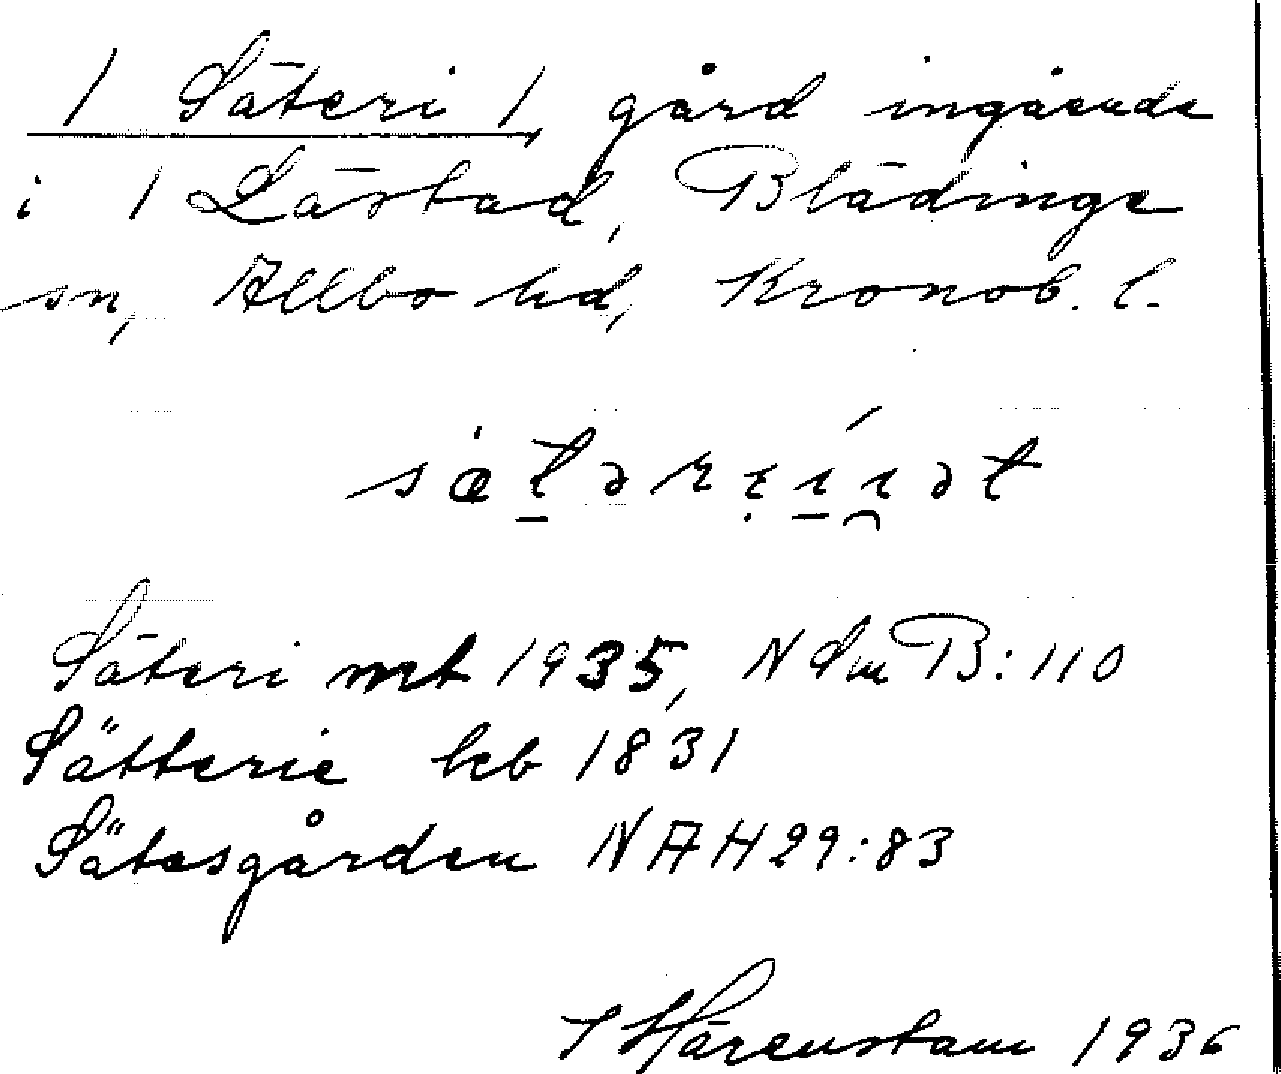 1 Säteri 1, gård ingående
i 1 Lästad, Blädinge
sn, Allbo hd, Kronob. l.
Säteri mt 1935, N Sm B: 110
Sätterie kb 1831
Sätesgården NAH 29:83
Härenstam 1936